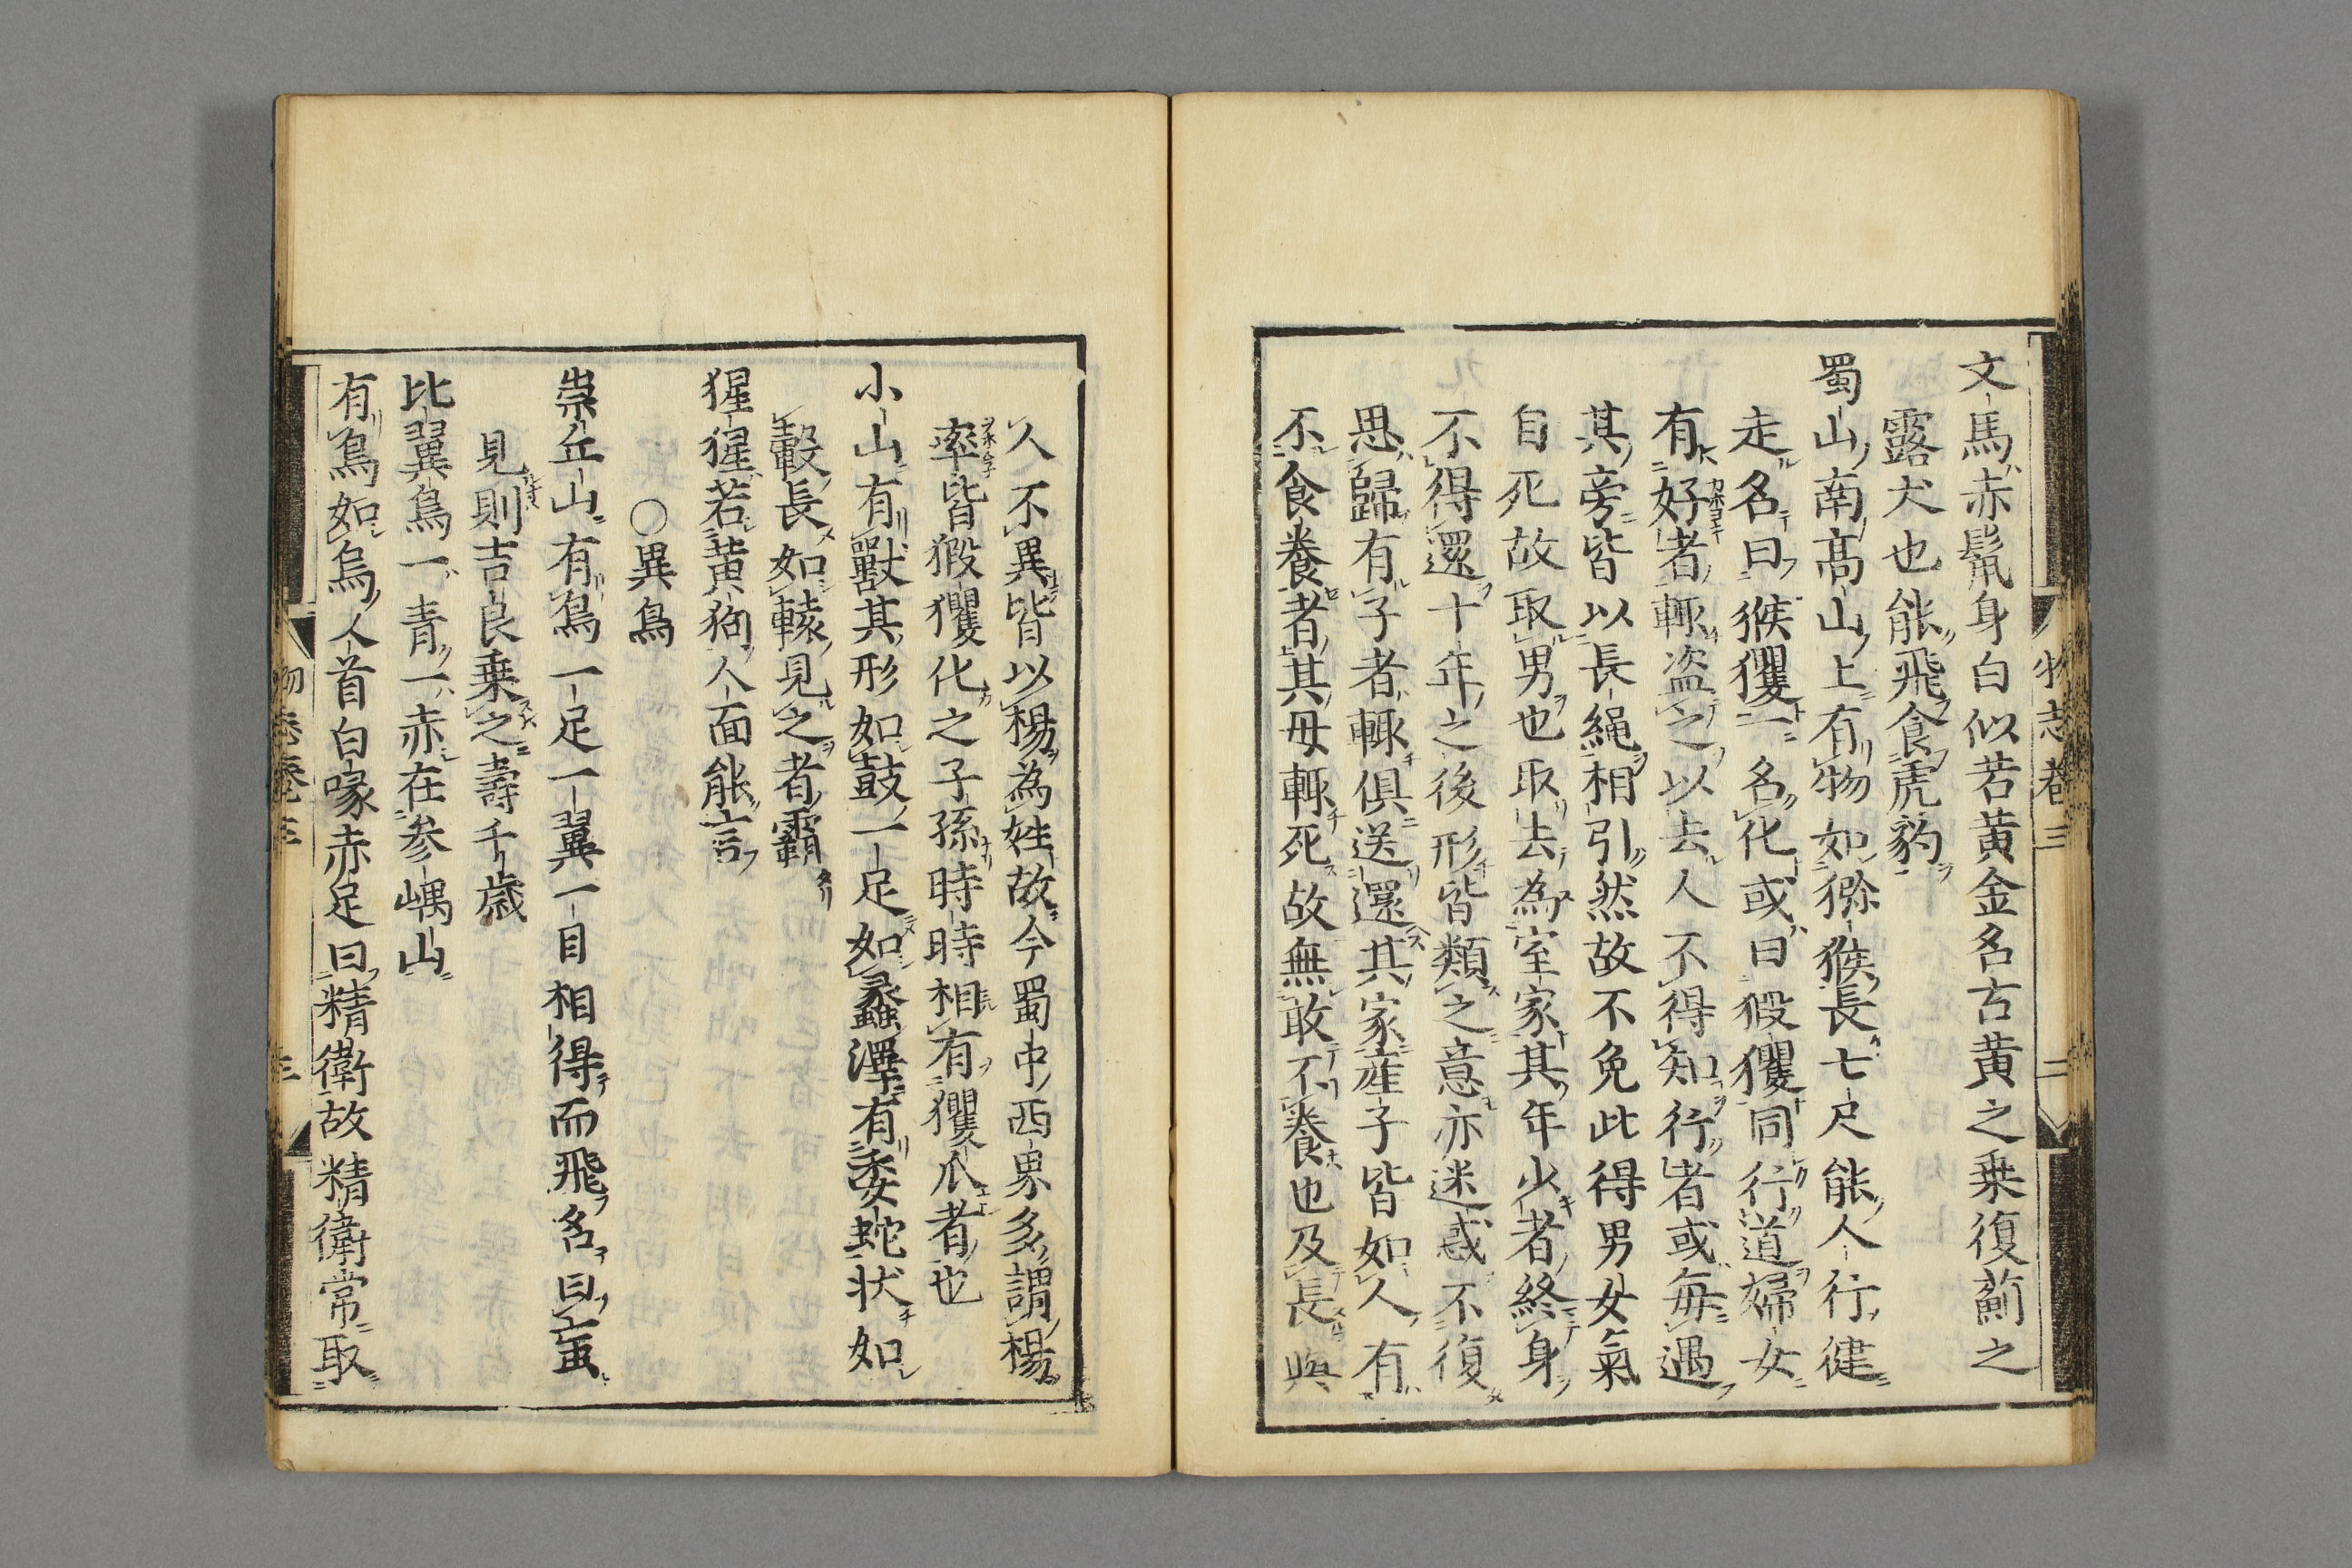 文馬赤鬣身白似若黄金名古黄之乗復薊之
露犬也能飛食虎豹
蜀山南髙山上有物如獼猴長七尺能人行健
走名曰猴玃一名化或曰猳玃同行道婦女
有好者輙盗之以去人不得知行者或毎遇
其旁皆以長繩相引然故不免此得男女氣
自死故取男也取去為室家其年少者終身
不得還十年之後形皆類之意亦迷惑不復
思歸有子者輙倶送還其家産子皆如人有
不食養者其母輙死故無敢不養也及長與
物志巻三 二
人不異皆以楊為姓故今蜀中西界多謂楊
率皆猳玃化之子孫時時相有玃爪者也
小山有獸其形如鼓一足如蠡澤有委蛇状如
轂長如轅見之者霸
猩猩若黄狗人面能言
〇異鳥
崇丘山有鳥一足一翼一目相得而飛名曰䖟
見則吉良乗之壽千歳
比翼鳥一青一赤在参嵎山
有鳥如烏人首白喙赤足曰精衛故精衛常取